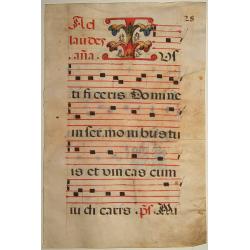 28
Ad
laudes
aña. Ius
ti fi ceris Domine
in ser mo nibus tu
is et vin cas cum
iu di caris ps. Mi